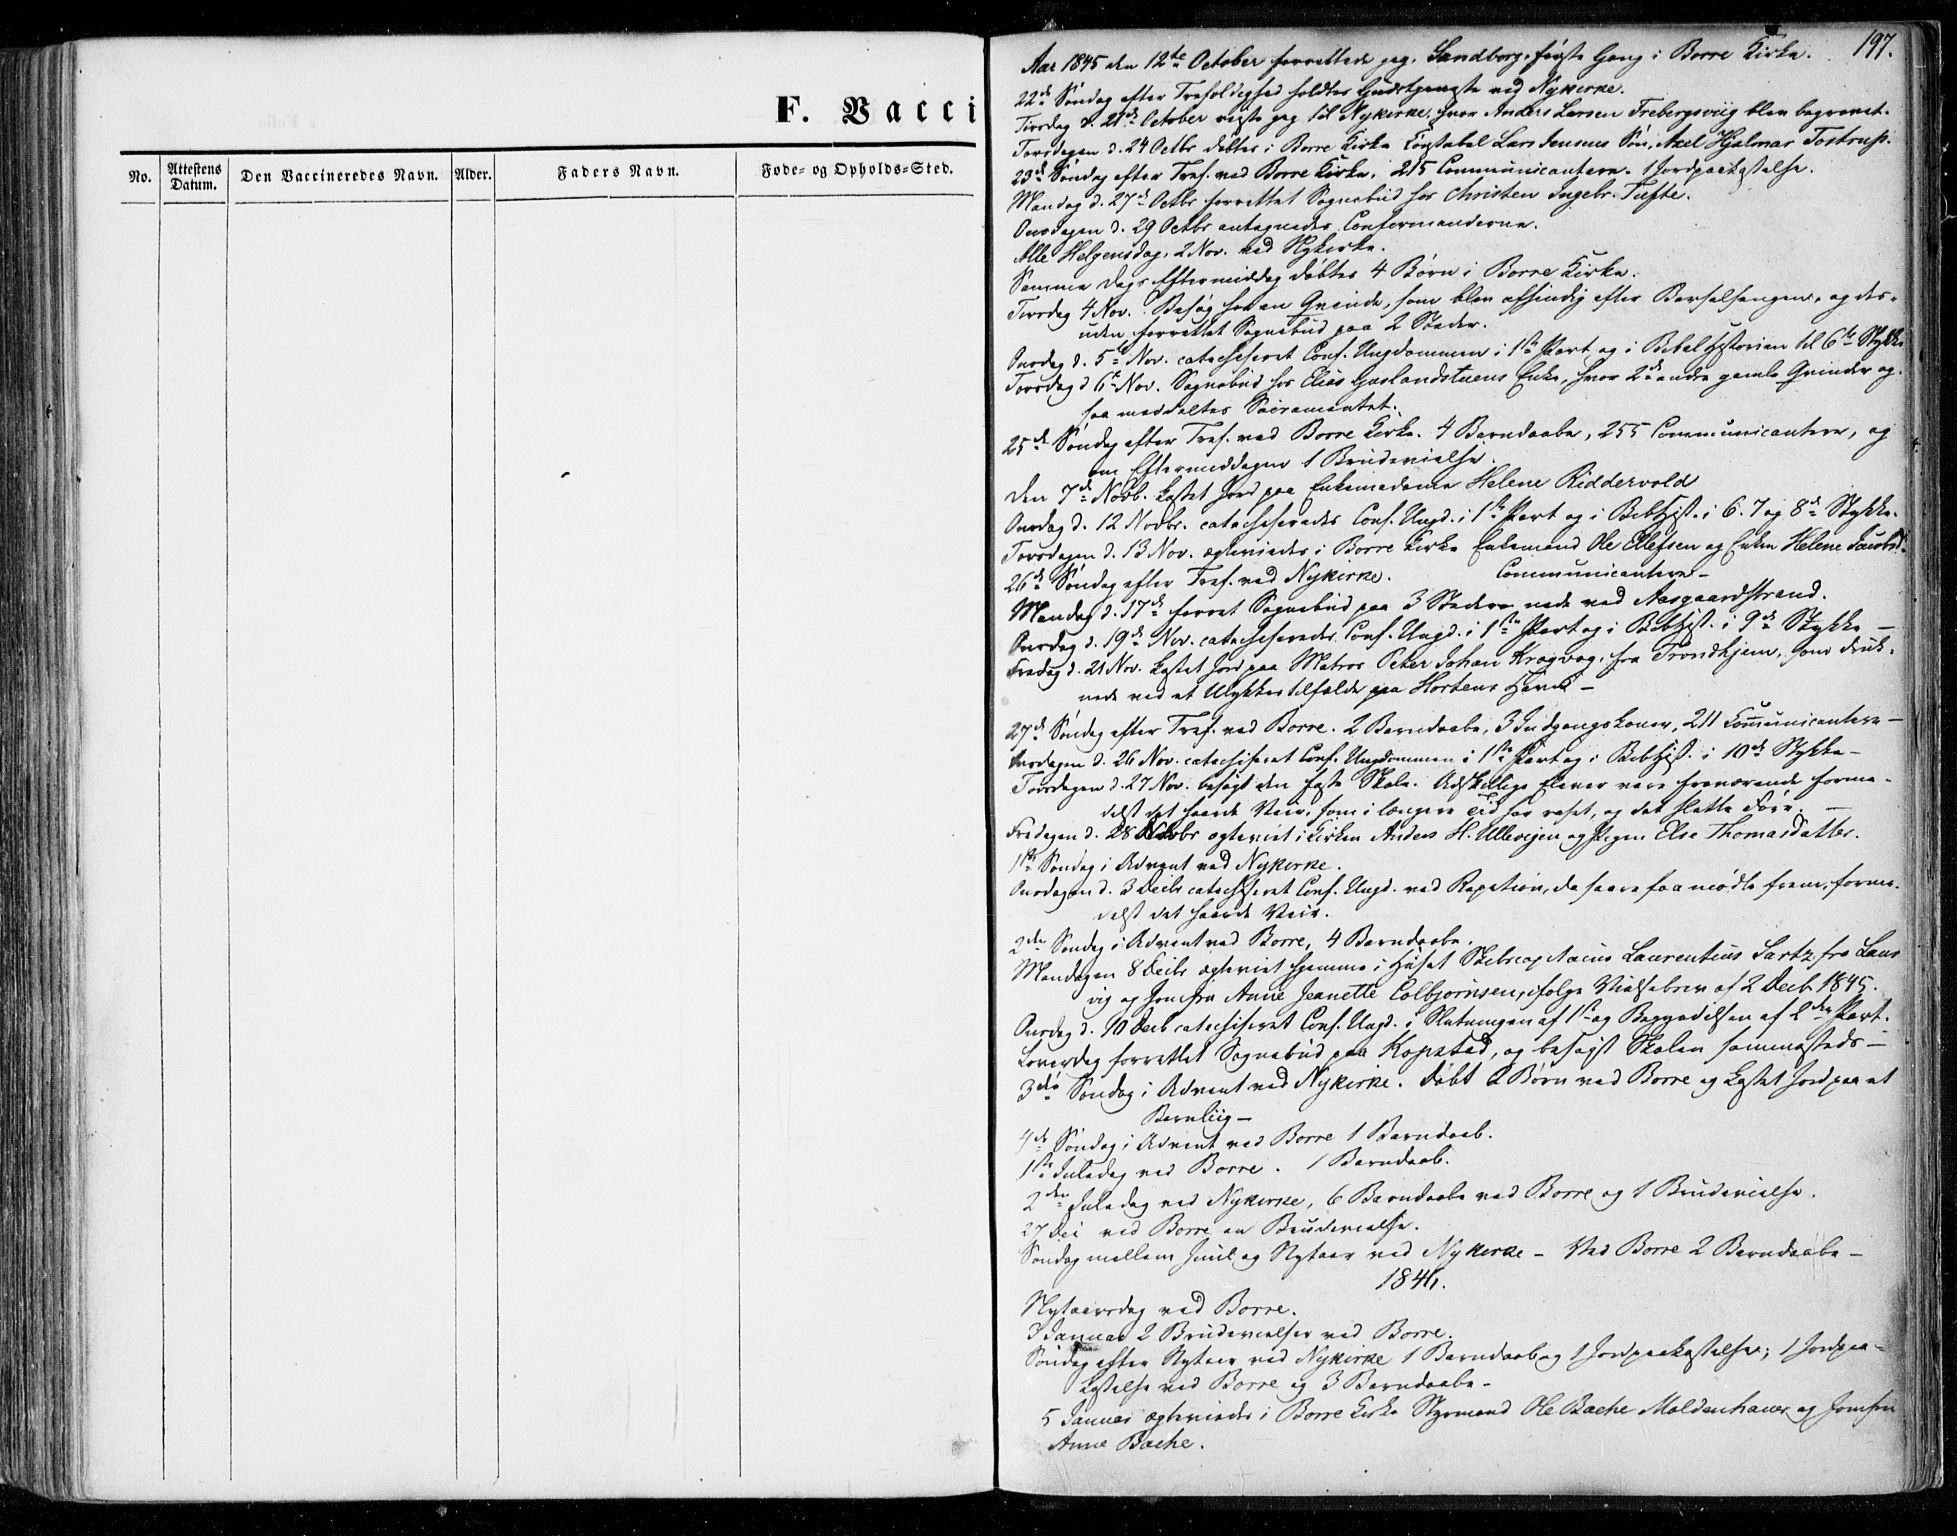 F. Vacci
No.
Attestens Datum.
Den Vaccineredes Navn.
Alder.
Faders Navn.
Føde- og Opholds-Sted.
197.
Aar 1845 den 12te October forrettede jeg, Sandborg, første Gang i Borre Kirke.
22de Søndag efter Trefoldighed holdtes Gudstjeneste ved Nykirke.
Tirsdag d. 21de October reiste jeg til Nykirke, hvor Anders Larsen Frebergsviig blev begravet.
Torsdagen d. 24 Octbr døbtes i Borre Kirke Constabel Lars Jensens Søn, Axel Hjelmar Tostrup.
23de Søndag efter Tref. ved Borre Kirke, 215 Communicantere. 1 Jordpaakastelse.
Mandag d. 27de Octbr forrettet Sognebud hos Christen Ingebr. Tufte.
Onsdagen d. 29 Octbr antegnedes Confirmanderne.
Alle Helgensdag, 2 Nov. ved Nykirke.
Samme Dags Eftermiddag døbtes 4 Børn i Borre Kirke.
Tirsdag 4 Nov. Besøg hos en Qvinde, som blev afsindig efter Barselsengen, og des-
uden forrettet Sognebud paa 2 Steder.
Onsdag d. 5te Nov. catechiseret Conf. Ungdommen i 1ste Part og i Bibelhistorien til 6te Stykke
Torsdag d 6te Nov. Sognebud hos Elias Gaslandstuens Enke, hvor 2de andre gamle Qvinder og-
saa meddeltes Sacramentet.
25de Søndag efter Tref. ved Borre Kirke. 4 Barndaabe, 255 Communicantere, og
om Eftermiddagen 1 Brudevielse.
Den 7de Novb. kastet Jord paa Enkemadame Helene Riddervold
Onsdag d. 12 Novbr. catechiseredes Conf. Ungd. i 1ste Part og i Bibhist. i 6. 7 og 8de Stykke.
Torsdagen d. 13 Nov. ægteviedes i Borre Kirke Enkemand Ole Ellefsen og Enken Helene Jacobsd.
26de Søndag efter Tref. ved Nykirke. Communicantere –
Mandag d. 17de forret Sognebud paa 3 Steder nede ved Aasgaardstrand.
Onsdag d. 19de Nov. catechiseredes Conf. Ungd. i 1ste Part og i Bibhist. i 9de Stykke –
Fredag d. 21 Nov. kastet Jord paa Matros Peter Johan Kragvag, fra Trondhjem, som druk-
nede ved et Ulykkestilfælde paa Hortens Havn –
27de Søndag efter Tref. ved Borre. 2 Barndaabe, 3 Indgangskoner, 211 Communicantere –
Onsdagen d. 26 Nov. catechiseret Conf. Ungdommen i 1ste Part og i Bibhist. i 10de Stykke –
Torsdagen d. 27 Nov. besøgt den faste Skole. Adskillige Elever vare fraværende forme-
delst det haarde Veir, som i længere Tid har raset, og det slette Føre. –
Fredagen d. 28 Novbr ægteviet i Kirken Anders H. Ullevigen og Pigen Else Thomasdatter.
1ste Søndag i Advent ved Nykirke.
Onsdagen d. 3 Decbr catechiseret Conf. Ungd. ved Repetion, da saare faa mødte frem, forme-
delst det haarde Veir.
2den Søndag i Advent ved Borre, 4 Barndaabe.
Mandagen 8 Decbr ægteviet hjemme i Huset Laurentius Sartz, fra Laur
vig og Jomfru Anne Jeanette Colbjørnsen, ifølge Vielsebrev af 2 Decb. 1845.
Onsdag d. 10 Decb catechiseret Conf. Ungd. i Slutningen af 1ste og Begyndelsen af 2den Part.
Løverdag forrettet Sognebud paa Kopstad, og besøgt Skolen sammesteds –
3die Søndag i Advent ved Nykirke. Døbt 2 Børn ved Borre og kastet Jord paa et
Barnliig –
4de Søndag i Advent ved Borre 1 Barndaab.
1ste Juledag ved Borre. 1 Barndaab.
2den Juledag ved Nykirke, 6 Barndaabe ved Borre og 1 Brudevielse.
27 Dec ved Borre en Brudevielse.
Søndag mellem Juul og Nytaar ved Nykirke – Ved Borre 2 Barndaabe –
1846.
Nytaarsdag ved Borre.
3 Januar 2 Brudevielser ved Borre.
Søndag efter Nytaar ved Nykirke 1 Barndaab og 1 Jordpaakastelse; 1 Jordpaa-
kastelse ved Borre og 3 Barndaabe –
5 Januar ægteviedes i Borre Kirke Styrmand Ole Bache Moldenhauer og Jomfru
Anne Bache.